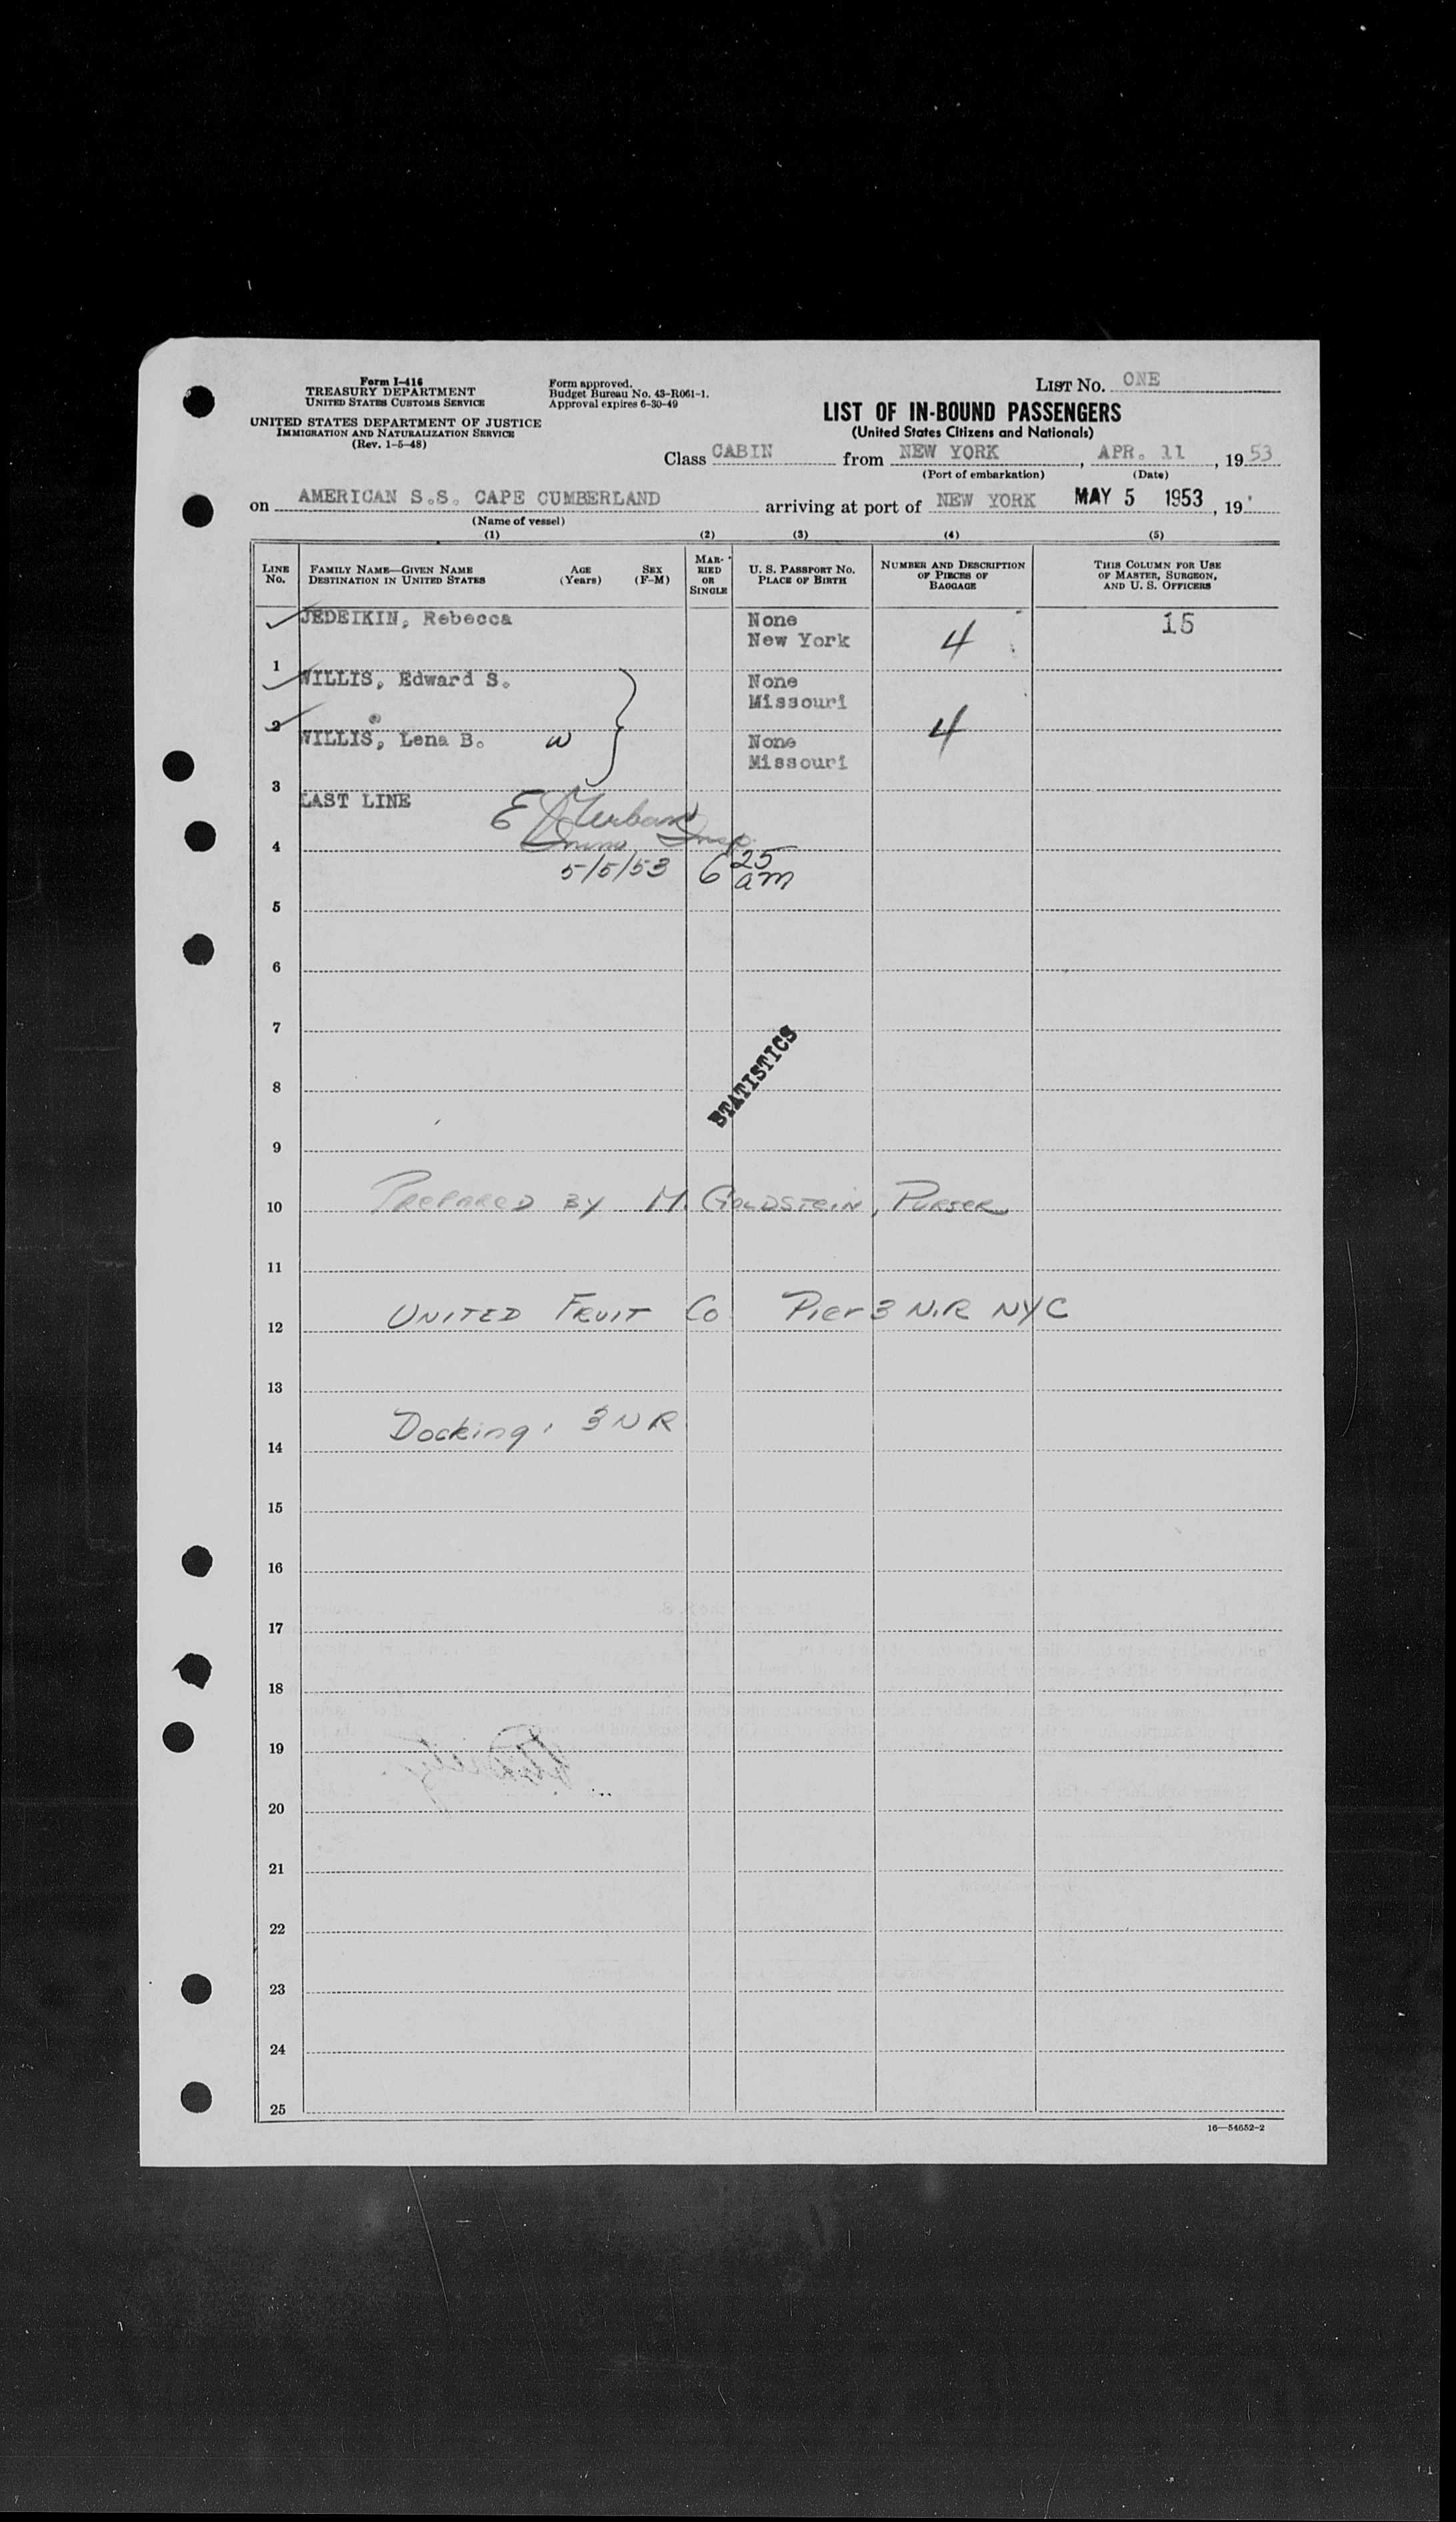 Form I-416
TREASURY DEPARTMENT
UNITED STATES CUSTOMS SERVICE
UNITED STATES DEPARTMENT OF JUSTICE
IMMIGRATION AND NATURALIZATION SERVICE
(Rev. 1-5-48)
Form approved.
Budget Bureau No. 43-R061-1.
Approval expires 6-30-49
LIST No. ONE
LIST OF IN-BOUND PASSENGERS
(United States Citizens and Nationals)
Class CABIN from NEW YORK, APR. 11, 1953
(Port of embarkation) (Date)
on AMERICAN S.S. CAPE CUMBERLAND arriving at port of NEW YORK MAY 5 1953, 19
(Name of vessel)
(1) (2) (3) (4) (5)
LINE No. FAMILY NAME—GIVEN NAME DESTINATION IN UNITED STATES AGE (Years) SEX (F-M) MARRIED OR SINGLE U. S. PASSPORT NO. PLACE OF BIRTH NUMBER AND DESCRIPTION OF PIECES OF BAGGAGE THIS COLUMN FOR USE OF MASTER, SURGEON, AND U. S. OFFICERS
JEDEIKIN, Rebecca None 15
New York 4
1
WILLIS, Edward S. None
Missouri
2 4
WILLIS, Lena B. w None
Missouri
3
LAST LINE
4
5/5/53 6 25 am
5
6
7
STATISTICS
8
9
10 PREPARED BY M. GOLDSTEIN, PURSER
11
12 UNITED FRUIT Co Pier 3 N.R NYC
13
14 Docking: 3 N R
15
16
17
18
19
20
21
22
23
24
25
16—54652-2